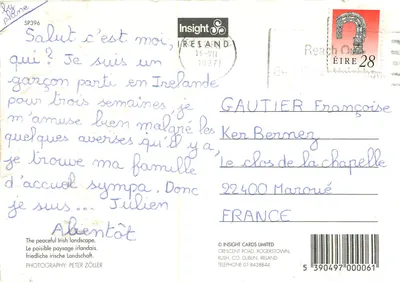 by avion
SP396
Salut c'est moi,
qui? Je suis un
garçon parti en Irelande
pour trois semaines, je
m'amuse bien malgré les
quelques averses qu'il y a,
je trouve ma famille
d'accueil sympa. Donc
je suis... Julien
Abientôt
The peaceful Irish landscape.
Le paisible paysage irlandais.
friedliche irische Landschaft.
PHOTOGRAPHY: PETER ZÖLLER
Insight
IRELAND
Reach Out
ÉIRE 28
GAUTIER Françoise
Ker Bernez
Le clos de la chapelle
22400 Maroué
FRANCE
© INSIGHT CARDS LIMITED
CRESCENT ROAD, ROGERSTOWN,
RUSH, CO. DUBLIN, IRELAND
TELEPHONE 01-8438844
5 390497 000061